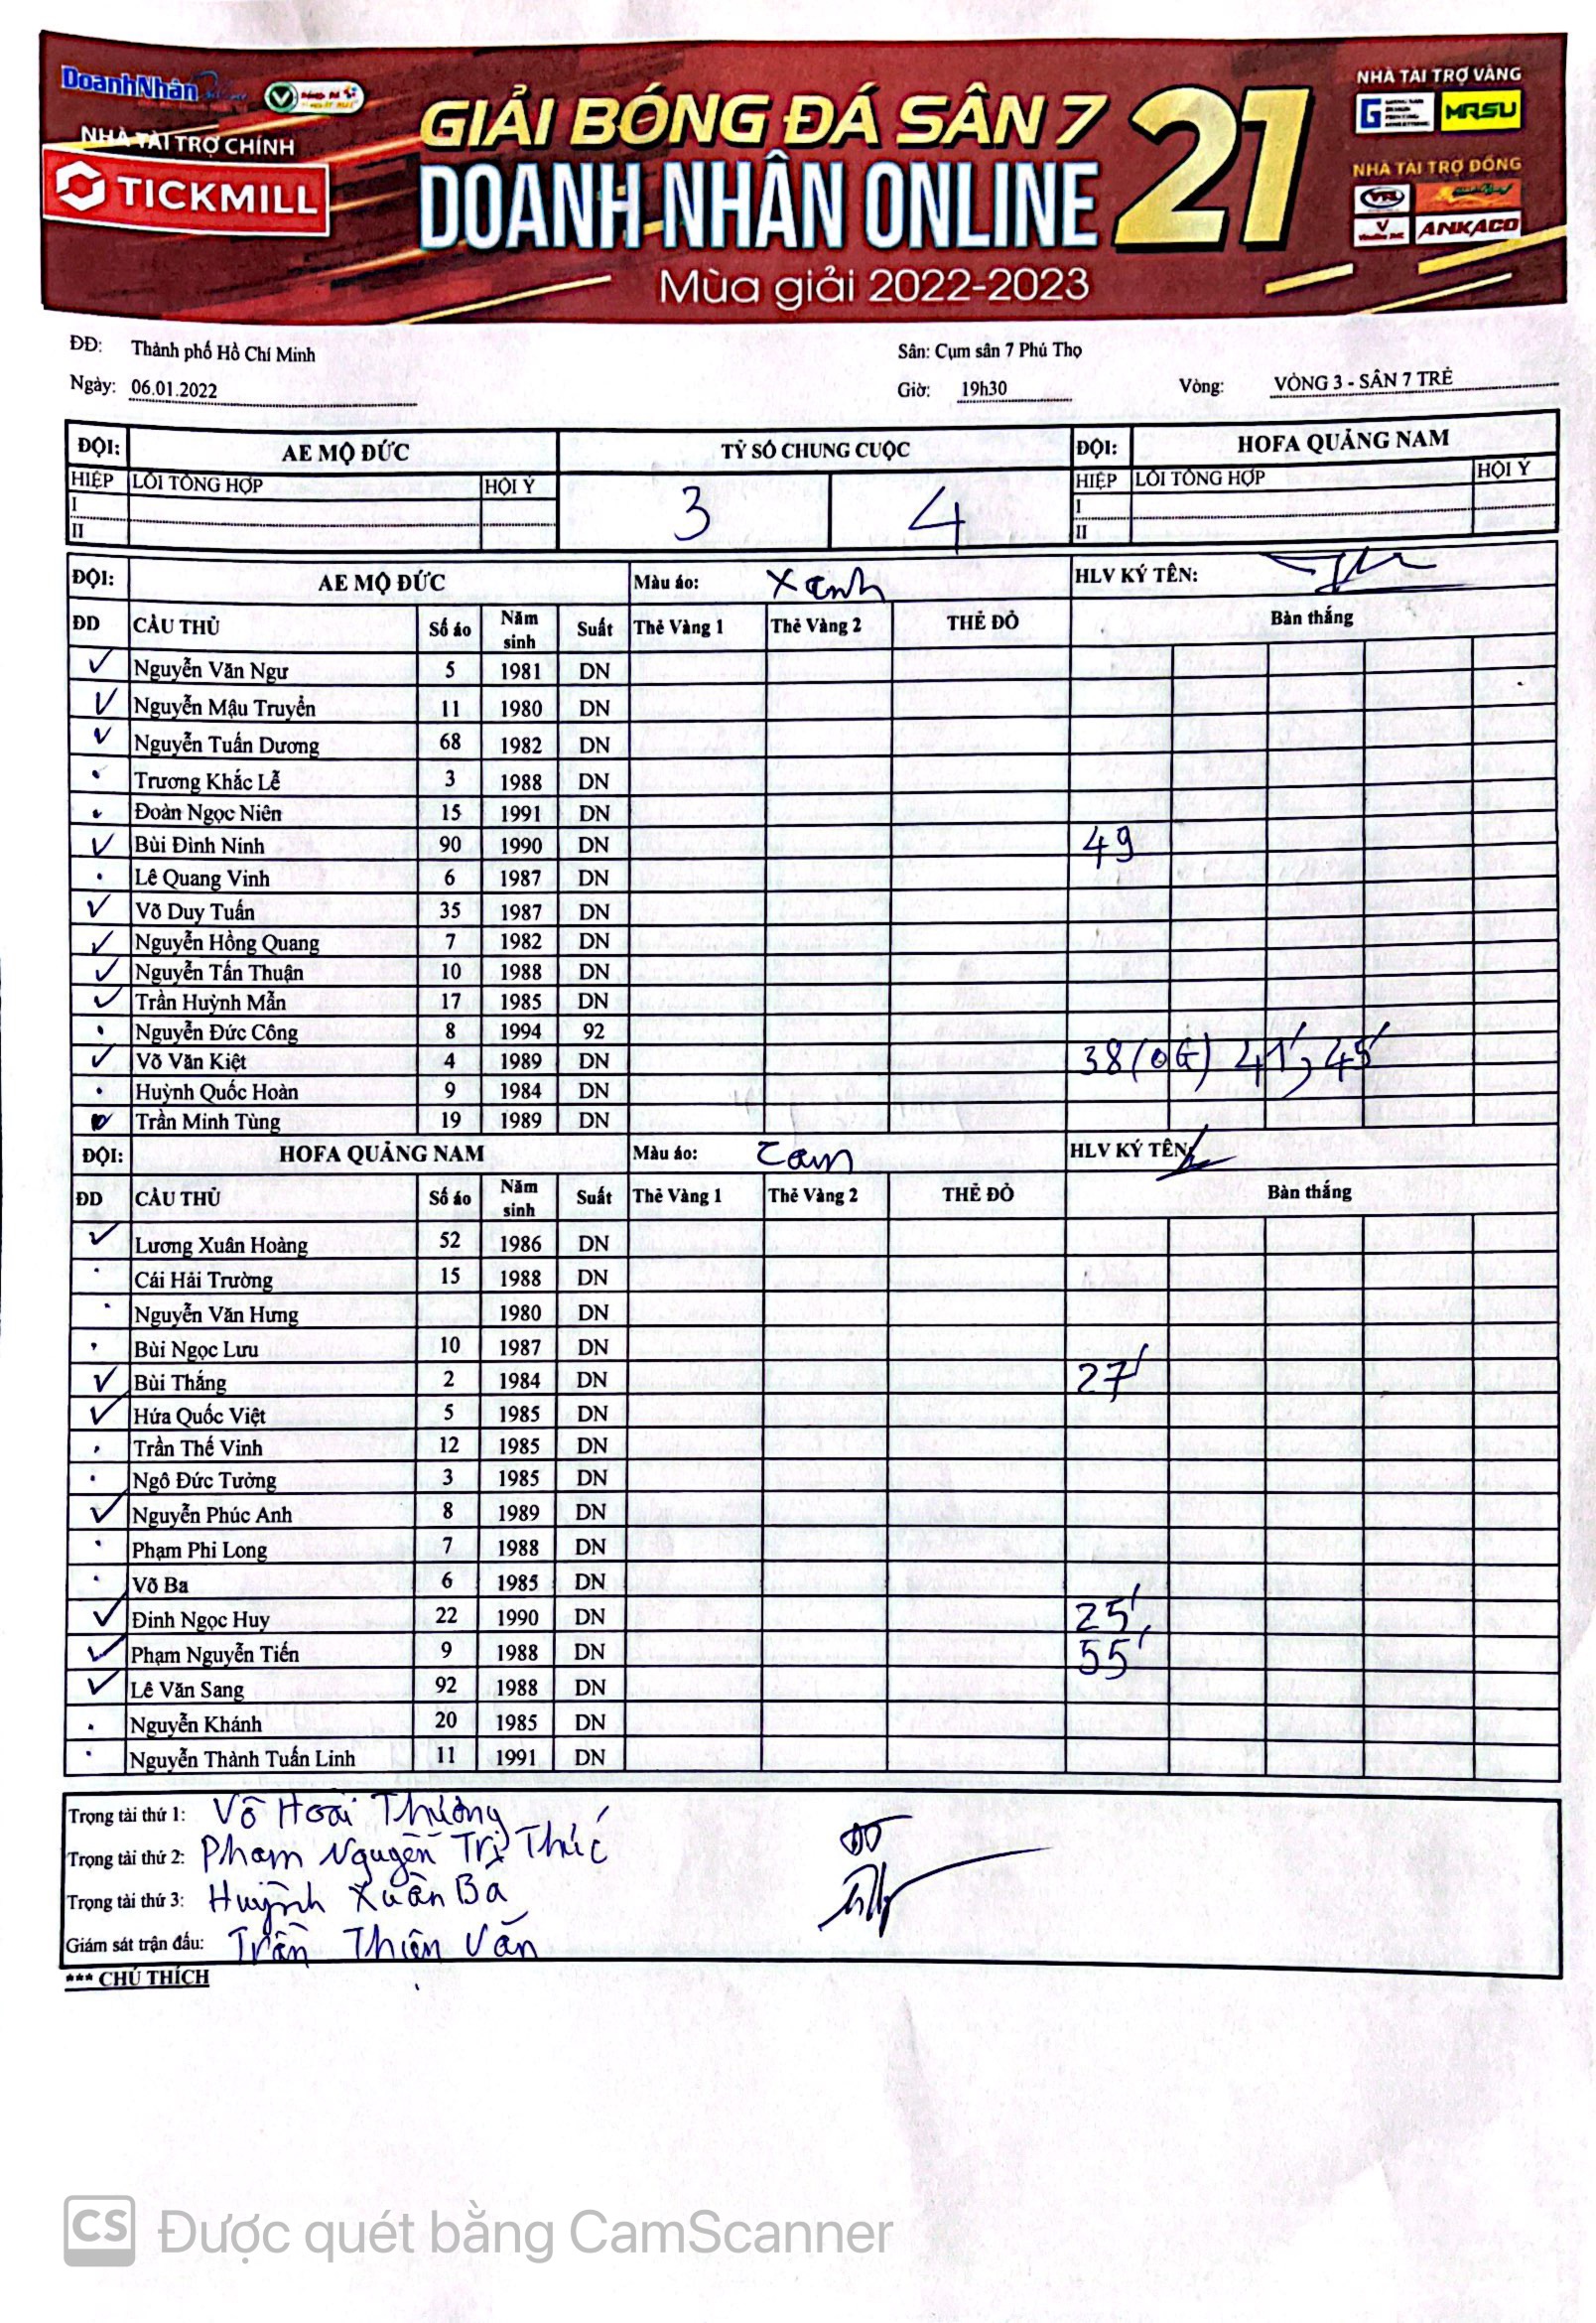 DoanhNhân
NHÀ TÀI TRỢ CHÍNH
TICKMILL
GIẢI BÓNG ĐÁ SÂN 7
DOANH NHÂN ONLINE
21
Mùa giải 2022-2023
NHÀ TÀI TRỢ VÀNG
G MR.SU
NHÀ TÀI TRỢ ĐỒNG
VRL
ANKACO
ĐĐ: Thành phố Hồ Chí Minh Sân: Cụm sân 7 Phú Thọ
Ngày: 06.01.2022 Giờ: 19h30 Vòng: VÒNG 3 - SÂN 7 TRẺ
ĐỘI: AE MỘ ĐỨC TỶ SỐ CHUNG CUỘC ĐỘI: HOFA QUẢNG NAM
HIỆP LỖI TỔNG HỢP HỘI Ý 3 4 HIỆP LỖI TỔNG HỢP HỘI Ý
I I
II II
ĐỘI: AE MỘ ĐỨC Màu áo: Xanh HLV KÝ TÊN:
ĐD CẦU THỦ Số áo Năm sinh Suất Thẻ Vàng 1 Thẻ Vàng 2 THẺ ĐỎ Bàn thắng
Nguyễn Văn Ngư 5 1981 DN
Nguyễn Mậu Truyền 11 1980 DN
Nguyễn Tuấn Dương 68 1982 DN
Trương Khắc Lễ 3 1988 DN
Đoàn Ngọc Niên 15 1991 DN
Bùi Đình Ninh 90 1990 DN 49
Lê Quang Vinh 6 1987 DN
Võ Duy Tuấn 35 1987 DN
Nguyễn Hồng Quang 7 1982 DN
Nguyễn Tấn Thuận 10 1988 DN
Trần Huỳnh Mẫn 17 1985 DN
Nguyễn Đức Công 8 1994 92
Võ Văn Kiệt 4 1989 DN 38 (OG) 41', 45'
Huỳnh Quốc Hoàn 9 1984 DN
Trần Minh Tùng 19 1989 DN
ĐỘI: HOFA QUẢNG NAM Màu áo: Cam HLV KÝ TÊN
ĐD CẦU THỦ Số áo Năm sinh Suất Thẻ Vàng 1 Thẻ Vàng 2 THẺ ĐỎ Bàn thắng
Lương Xuân Hoàng 52 1986 DN
Cái Hải Trường 15 1988 DN
Nguyễn Văn Hưng 1980 DN
Bùi Ngọc Lưu 10 1987 DN
Bùi Thắng 2 1984 DN 27'
Hứa Quốc Việt 5 1985 DN
Trần Thế Vinh 12 1985 DN
Ngô Đức Tưởng 3 1985 DN
Nguyễn Phúc Anh 8 1989 DN
Phạm Phi Long 7 1988 DN
Võ Ba 6 1985 DN
Đinh Ngọc Huy 22 1990 DN 25',
Phạm Nguyễn Tiến 9 1988 DN 55'
Lê Văn Sang 92 1988 DN
Nguyễn Khánh 20 1985 DN
Nguyễn Thành Tuấn Linh 11 1991 DN
Trọng tài thứ 1: Võ Hoài Thương
Trọng tài thứ 2: Phạm Nguyễn Tri Thức
Trọng tài thứ 3: Huỳnh Xuân Bá
Giám sát trận đấu: Trần Thiện Văn
*** CHÚ THÍCH
CS Được quét bằng CamScanner